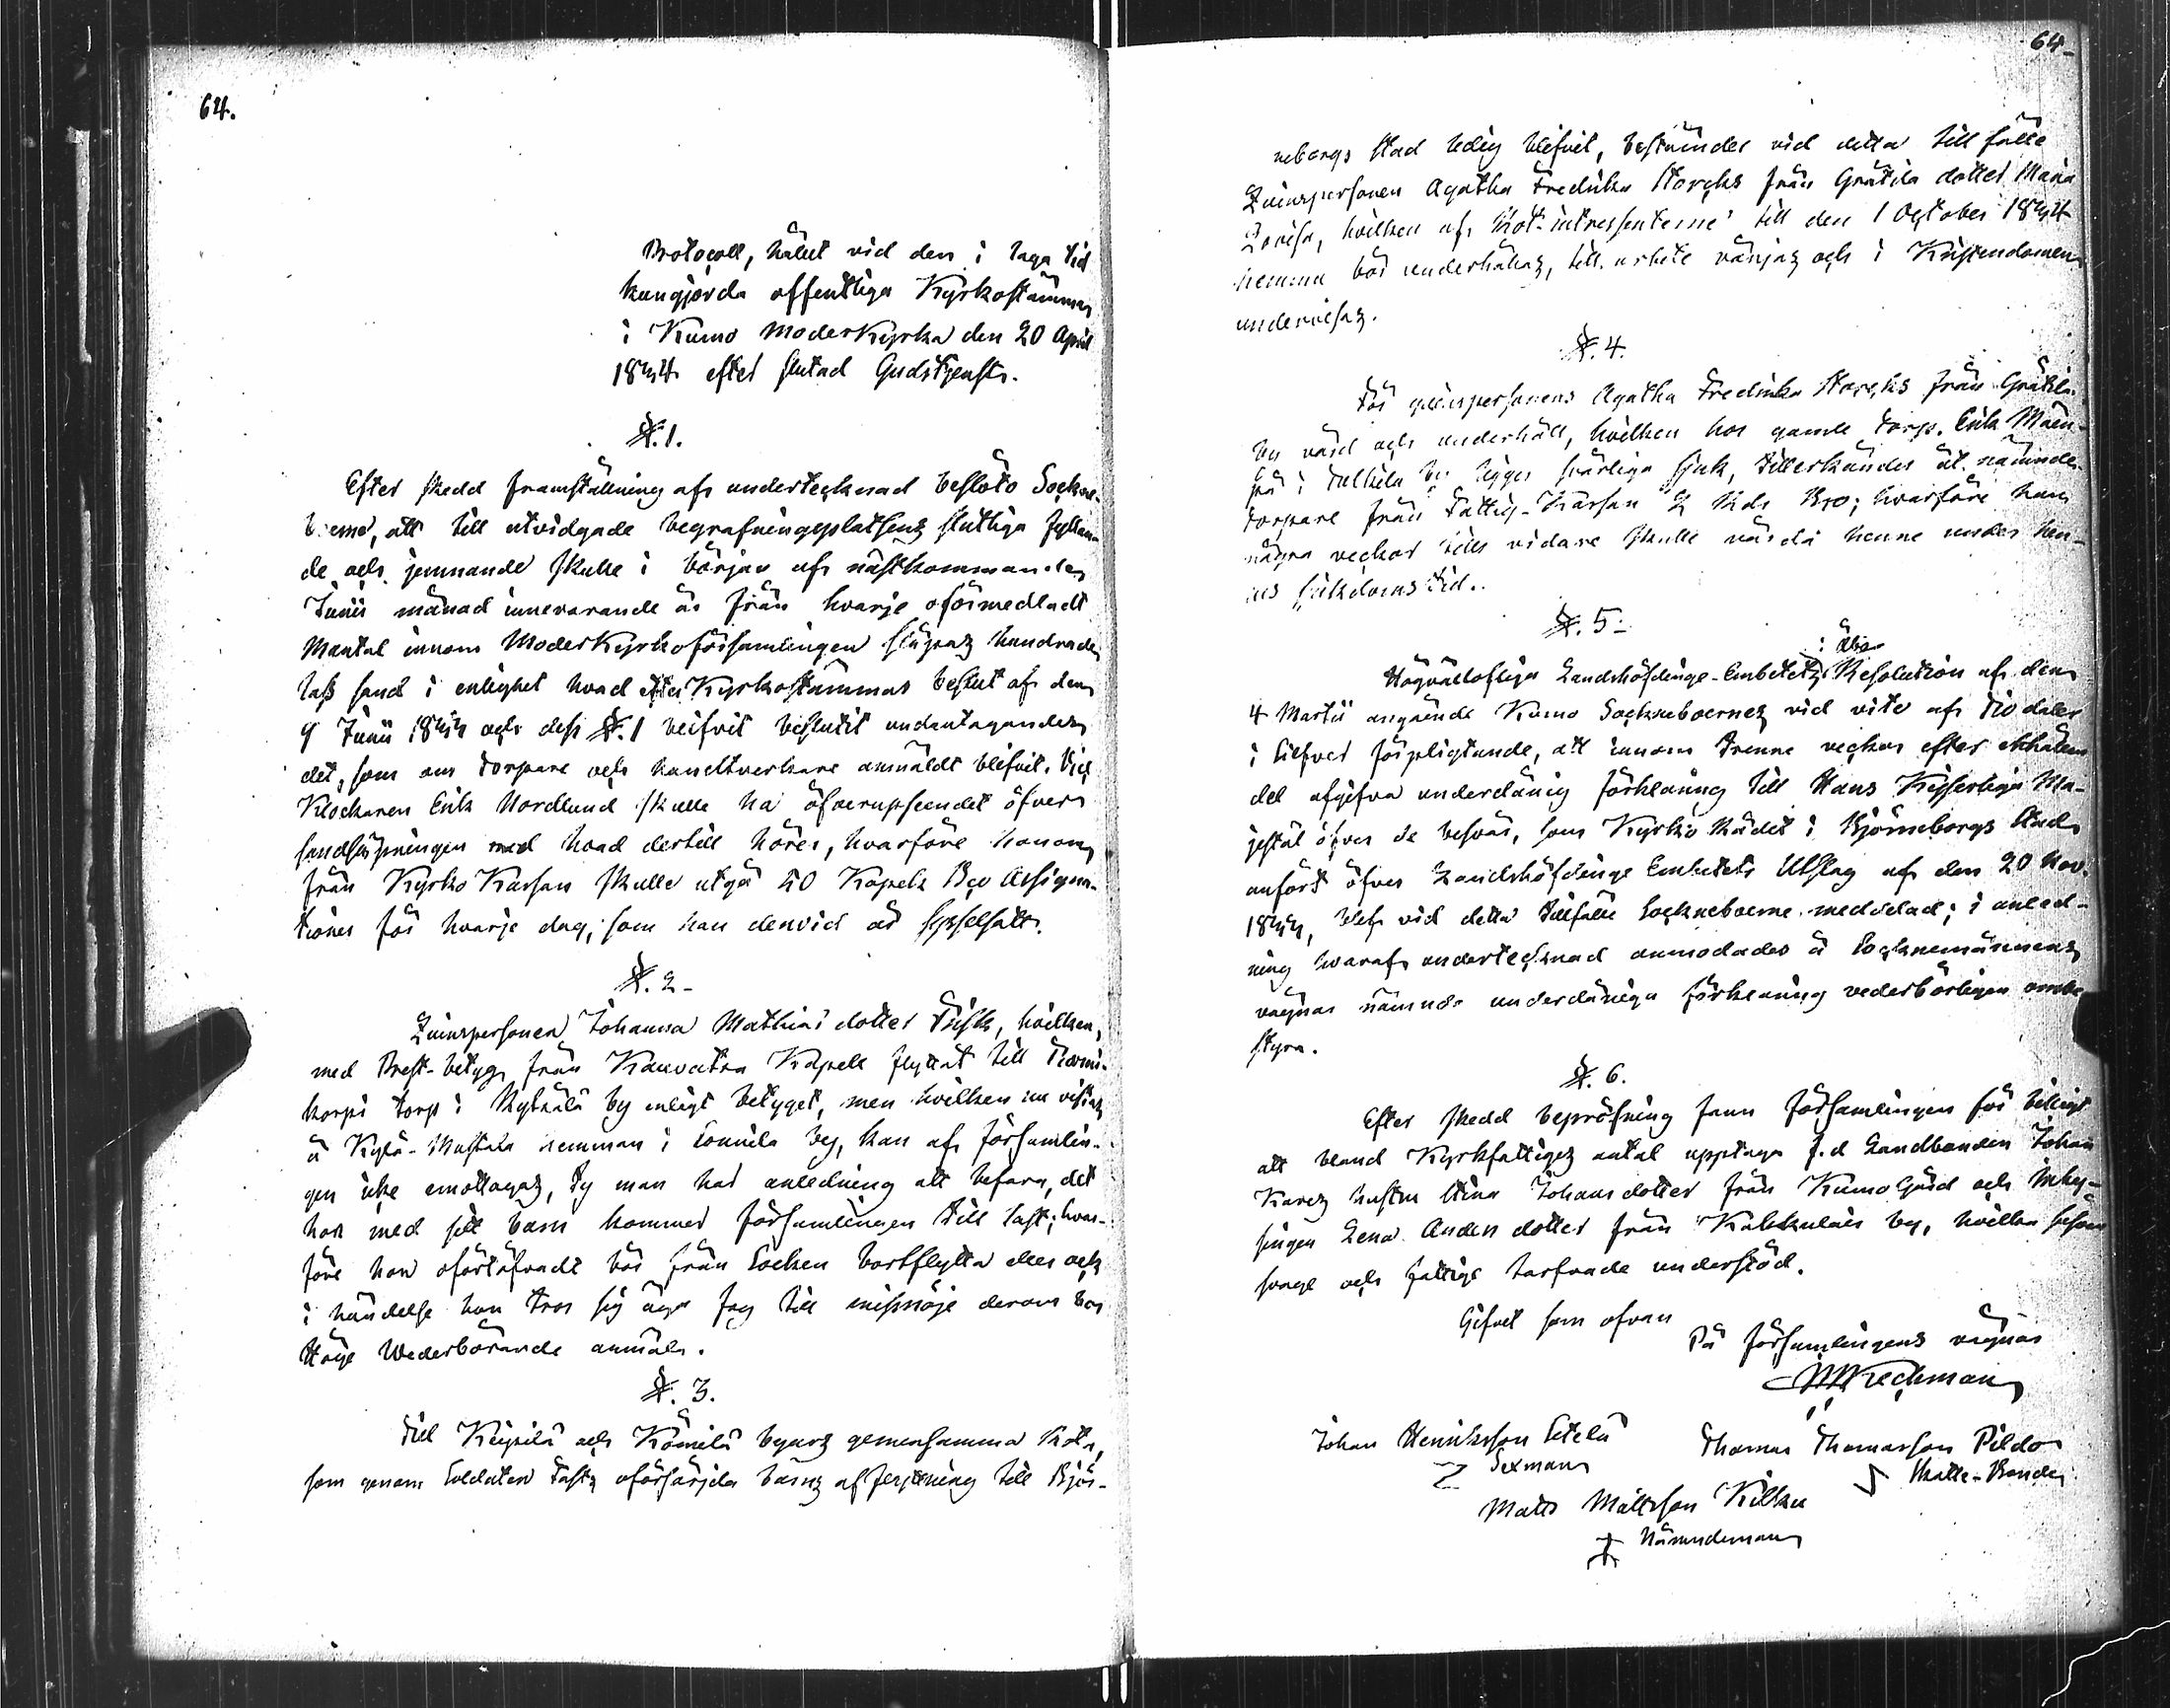 64.
Protocoll, hållit vid den i laga tid
kungjorda offentliga Kyrkostämman
i Kumo Moderkyrka den 20 April
1834 efter slutad Gudstjenst.
§. 1.
Efter skedd framställning af undertecknad beslöto Sockne-
boerne, att till utvidgade begrafningsplatsens slutliga fyllan-
de och jemnande skulle i början af nästkommande
Junii månad innevarande år från hvarje oförmedladt
Mantal innom Moderkyrkoförsamlingen hundrade
lass sand i enlighet hvad efter Kyrkostämmas beslut af den
9 Junii 1833 och dess §. 1 blifvit beslutit undantagandes
det, som om Torpare och handtverkare anmäldt blifvit. Vid
Klockaren Erik Nordlund skulle ha öfveruppseendet öfver
sandkörningen med hvad dertill hörer, hvarföre honom
från Kyrko Kassan skulle utgå 50 Kopek Bco Assigna-
tioner för hvarje dag, som han dervid är sysselsatt.
§. 2.
Qvinspersonen Johanna Mathias dotter Frisk, hvilken,
med Prest-betyg från Kauvatsa Kapell flyttat till
korpi torp i Kyttälä by enligt betyget, men hvilken nu vistas
å Kylä- hemman i Sonnila by, kan af församlin-
gen icke emottagas, ty man har anledning att befara, det
hon med sitt barn kommer församlingen till last; hvar-
före hon ofördröfvadt bör från Socken bortflytta eller och
i händelse hon tror sig äga fog till missnöje derom hos
Höge Wederbörande anmäla.
§. 3.
Till Keipilä och Kömilä byars gemensamma Rota,
som genom Soldaten Fasts oförsörjda barns afflyttning till Björ-
64
neborgs stad ledig blifvit, bestämdes vid detta tillfälle
Qvinspersonen Agatha Fredrika Storcks från Gråtila dotter Maria
Lovisa, hvilken af Rot-intressenterne till den 1 October 1834
hemma bör underhållas, till arbete vänjas och i Kristendomen
undervisas.
§. 4.
För qvinspersonens Agatha Fredrika Storcks från Gråtila
by vård och underhåll, hvilken hos gamle Torp. Erik Mäen-
pä i Tulkila by ligger svårligen sjuk, tillerkändes åt nämnde
Torpare från Fattig-Kassan 2 Rub. Bco; hvarföre han
några veckor tills vidare skulle vårda henne under hen-
nes sjukdoms tid.
§. 5.
i Åbo
Högvällofliga Landshöfdinge-Embetets Resolution af den
4 Martii angående Kumo Sockneboernes vid vite af Tio daler
i Silfver förpligtande, att innom trenne veckor efter erhållen
del afgifva underdånig förklaring till Hans Kejserliga Ma-
jestät öfver de besvär, som Kyrko Rådet i Björneborgs Stad
anfört öfver Landshöfdinge Embetets Utslag af den 20 Nov.
1833, blef vid detta tillfälle Sockneboerne meddelad; i anled-
ning hvaraf undertecknad anmodades å Socknemännens
vägnar nämnde underdåniga förklaring vederbörligen ombe-
styra.
§. 6.
Efter skedd bepröfning fann församlingen för billigt
att bland Kyrkfattiges antal upptaga f.d Landbonden Johan
Kares hustru Stina Johans dotter från Kumo Gård och Inhy-
singen Lena Anders dotter från Kakkulais by, hvilka såsom
svage och fattige tarfvade understöd.
Gifvet som ofvan
På församlingens vägnar
Johan Henriksson Etelä
Sexman
Thomas Thomasson Pildo
Skatte-Bonde
Matts Mattsson Kilkku
Nämndeman